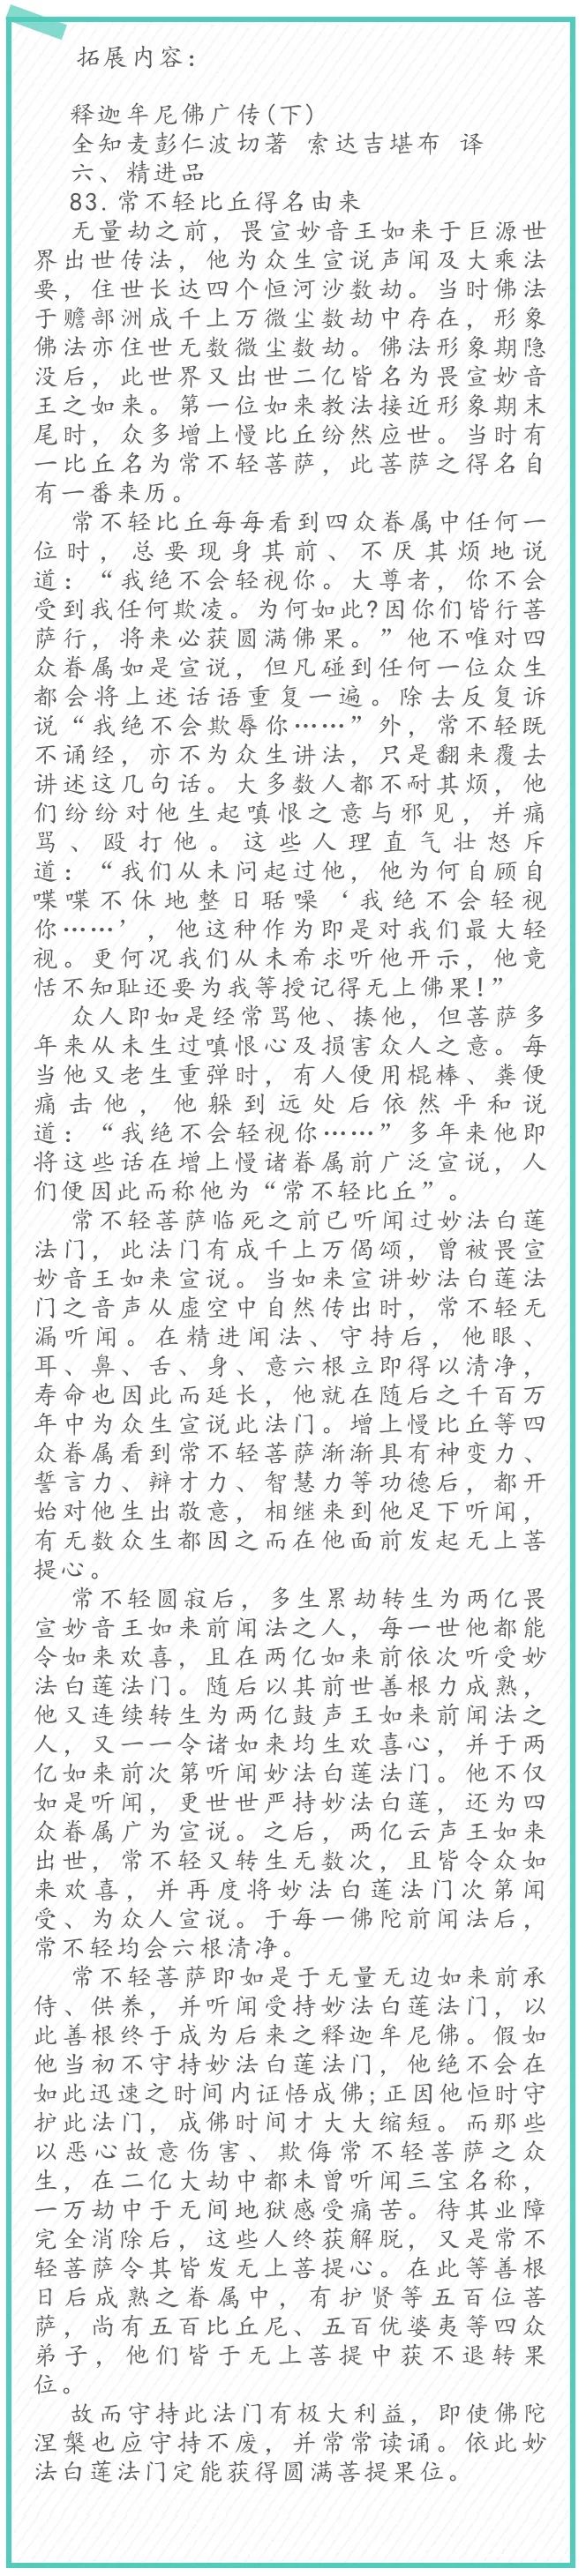 拓展内容：
释迦牟尼佛广传(下)
全知麦彭仁波切著 索达吉堪布 译
六、精进品
83.常不轻比丘得名由来
无量劫之前，畏宣妙音王如来于巨源世
界出世传法，他为众生宣说声闻及大乘法
要，住世长达四个恒河沙数劫。当时佛法
于赡部洲成千上万微尘数劫中存在，形象
佛法亦住世无数微尘数劫。佛法形象期隐
没后，此世界又出世二亿皆名为畏宣妙音
王之如来。第一位如来教法接近形象期末
尾时，众多增上慢比丘纷然应世。当时有
一比丘名为常不轻菩萨，此菩萨之得名自
有一番来历。
常不轻比丘每每看到四众眷属中任何一
位时，总要现身其前、不厌其烦地说
道：“我绝不会轻视你。大尊者，你不会
受到我任何欺凌。为何如此?因你们皆行菩
萨行，将来必获圆满佛果。”他不唯对四
众眷属如是宣说，但凡碰到任何一位众生
都会将上述话语重复一遍。除去反复诉
说“我绝不会欺辱你……”外，常不轻既
不诵经，亦不为众生讲法，只是翻来覆去
讲述这几句话。大多数人都不耐其烦，他
们纷纷对他生起嗔恨之意与邪见，并痛
骂、殴打他。这些人理直气壮怒斥
道：“我们从未问起过他，他为何自顾自
喋喋不休地整日聒噪‘我绝不会轻视
你……’，他这种作为即是对我们最大轻
视。更何况我们从未希求听他开示，他竟
恬不知耻还要为我等授记得无上佛果!”
众人即如是经常骂他、揍他，但菩萨多
年来从未生过嗔恨心及损害众人之意。每
当他又老生重弹时，有人便用棍棒、粪便
痛击他，他躲到远处后依然平和说
道：“我绝不会轻视你……”多年来他即
将这些话在增上慢诸眷属前广泛宣说，人
们便因此而称他为“常不轻比丘”。
常不轻菩萨临死之前已听闻过妙法白莲
法门，此法门有成千上万偈颂，曾被畏宣
妙音王如来宣说。当如来宣讲妙法白莲法
门之音声从虚空中自然传出时，常不轻无
漏听闻。在精进闻法、守持后，他眼、
耳、鼻、舌、身、意六根立即得以清净，
寿命也因此而延长，他就在随后之千百万
年中为众生宣说此法门。增上慢比丘等四
众眷属看到常不轻菩萨渐渐具有神变力、
誓言力、辩才力、智慧力等功德后，都开
始对他生出敬意，相继来到他足下听闻，
有无数众生都因之而在他面前发起无上菩
提心。
常不轻圆寂后，多生累劫转生为两亿畏
宣妙音王如来前闻法之人，每一世他都能
令如来欢喜，且在两亿如来前依次听受妙
法白莲法门。随后以其前世善根力成熟，
他又连续转生为两亿鼓声王如来前闻法之
人，又一一令诸如来均生欢喜心，并于两
亿如来前次第听闻妙法白莲法门。他不仅
如是听闻，更世世严持妙法白莲，还为四
众眷属广为宣说。之后，两亿云声王如来
出世，常不轻又转生无数次，且皆令众如
来欢喜，并再度将妙法白莲法门次第闻
受、为众人宣说。于每一佛陀前闻法后，
常不轻均会六根清净。
常不轻菩萨即如是于无量无边如来前承
侍、供养，并听闻受持妙法白莲法门，以
此善根终于成为后来之释迦牟尼佛。假如
他当初不守持妙法白莲法门，他绝不会在
如此迅速之时间内证悟成佛;正因他恒时守
护此法门，成佛时间才大大缩短。而那些
以恶心故意伤害、欺侮常不轻菩萨之众
生，在二亿大劫中都未曾听闻三宝名称，
一万劫中于无间地狱感受痛苦。待其业障
完全消除后，这些人终获解脱，又是常不
轻菩萨令其皆发无上菩提心。在此等善根
日后成熟之眷属中，有护贤等五百位菩
萨，尚有五百比丘尼、五百优婆夷等四众
弟子，他们皆于无上菩提中获不退转果
位。
故而守持此法门有极大利益，即使佛陀
涅槃也应守持不废，并常常读诵。依此妙
法白莲法门定能获得圆满菩提果位。